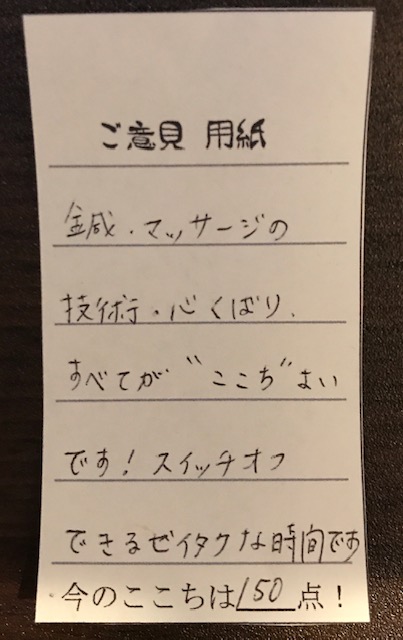 ご意見 用紙
鍼・マッサージの
技術・心くばり、
すべてが〝ここち〟よい
です！スイッチオフ
できるゼイタクな時間です
今のここちは150点！